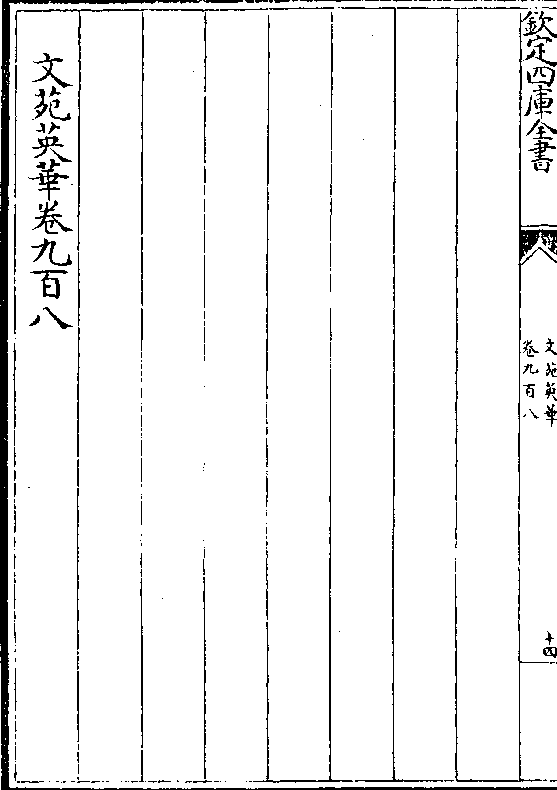 欽定四庫全書
文苑英華
卷九百八
十四
文苑英華卷九百八